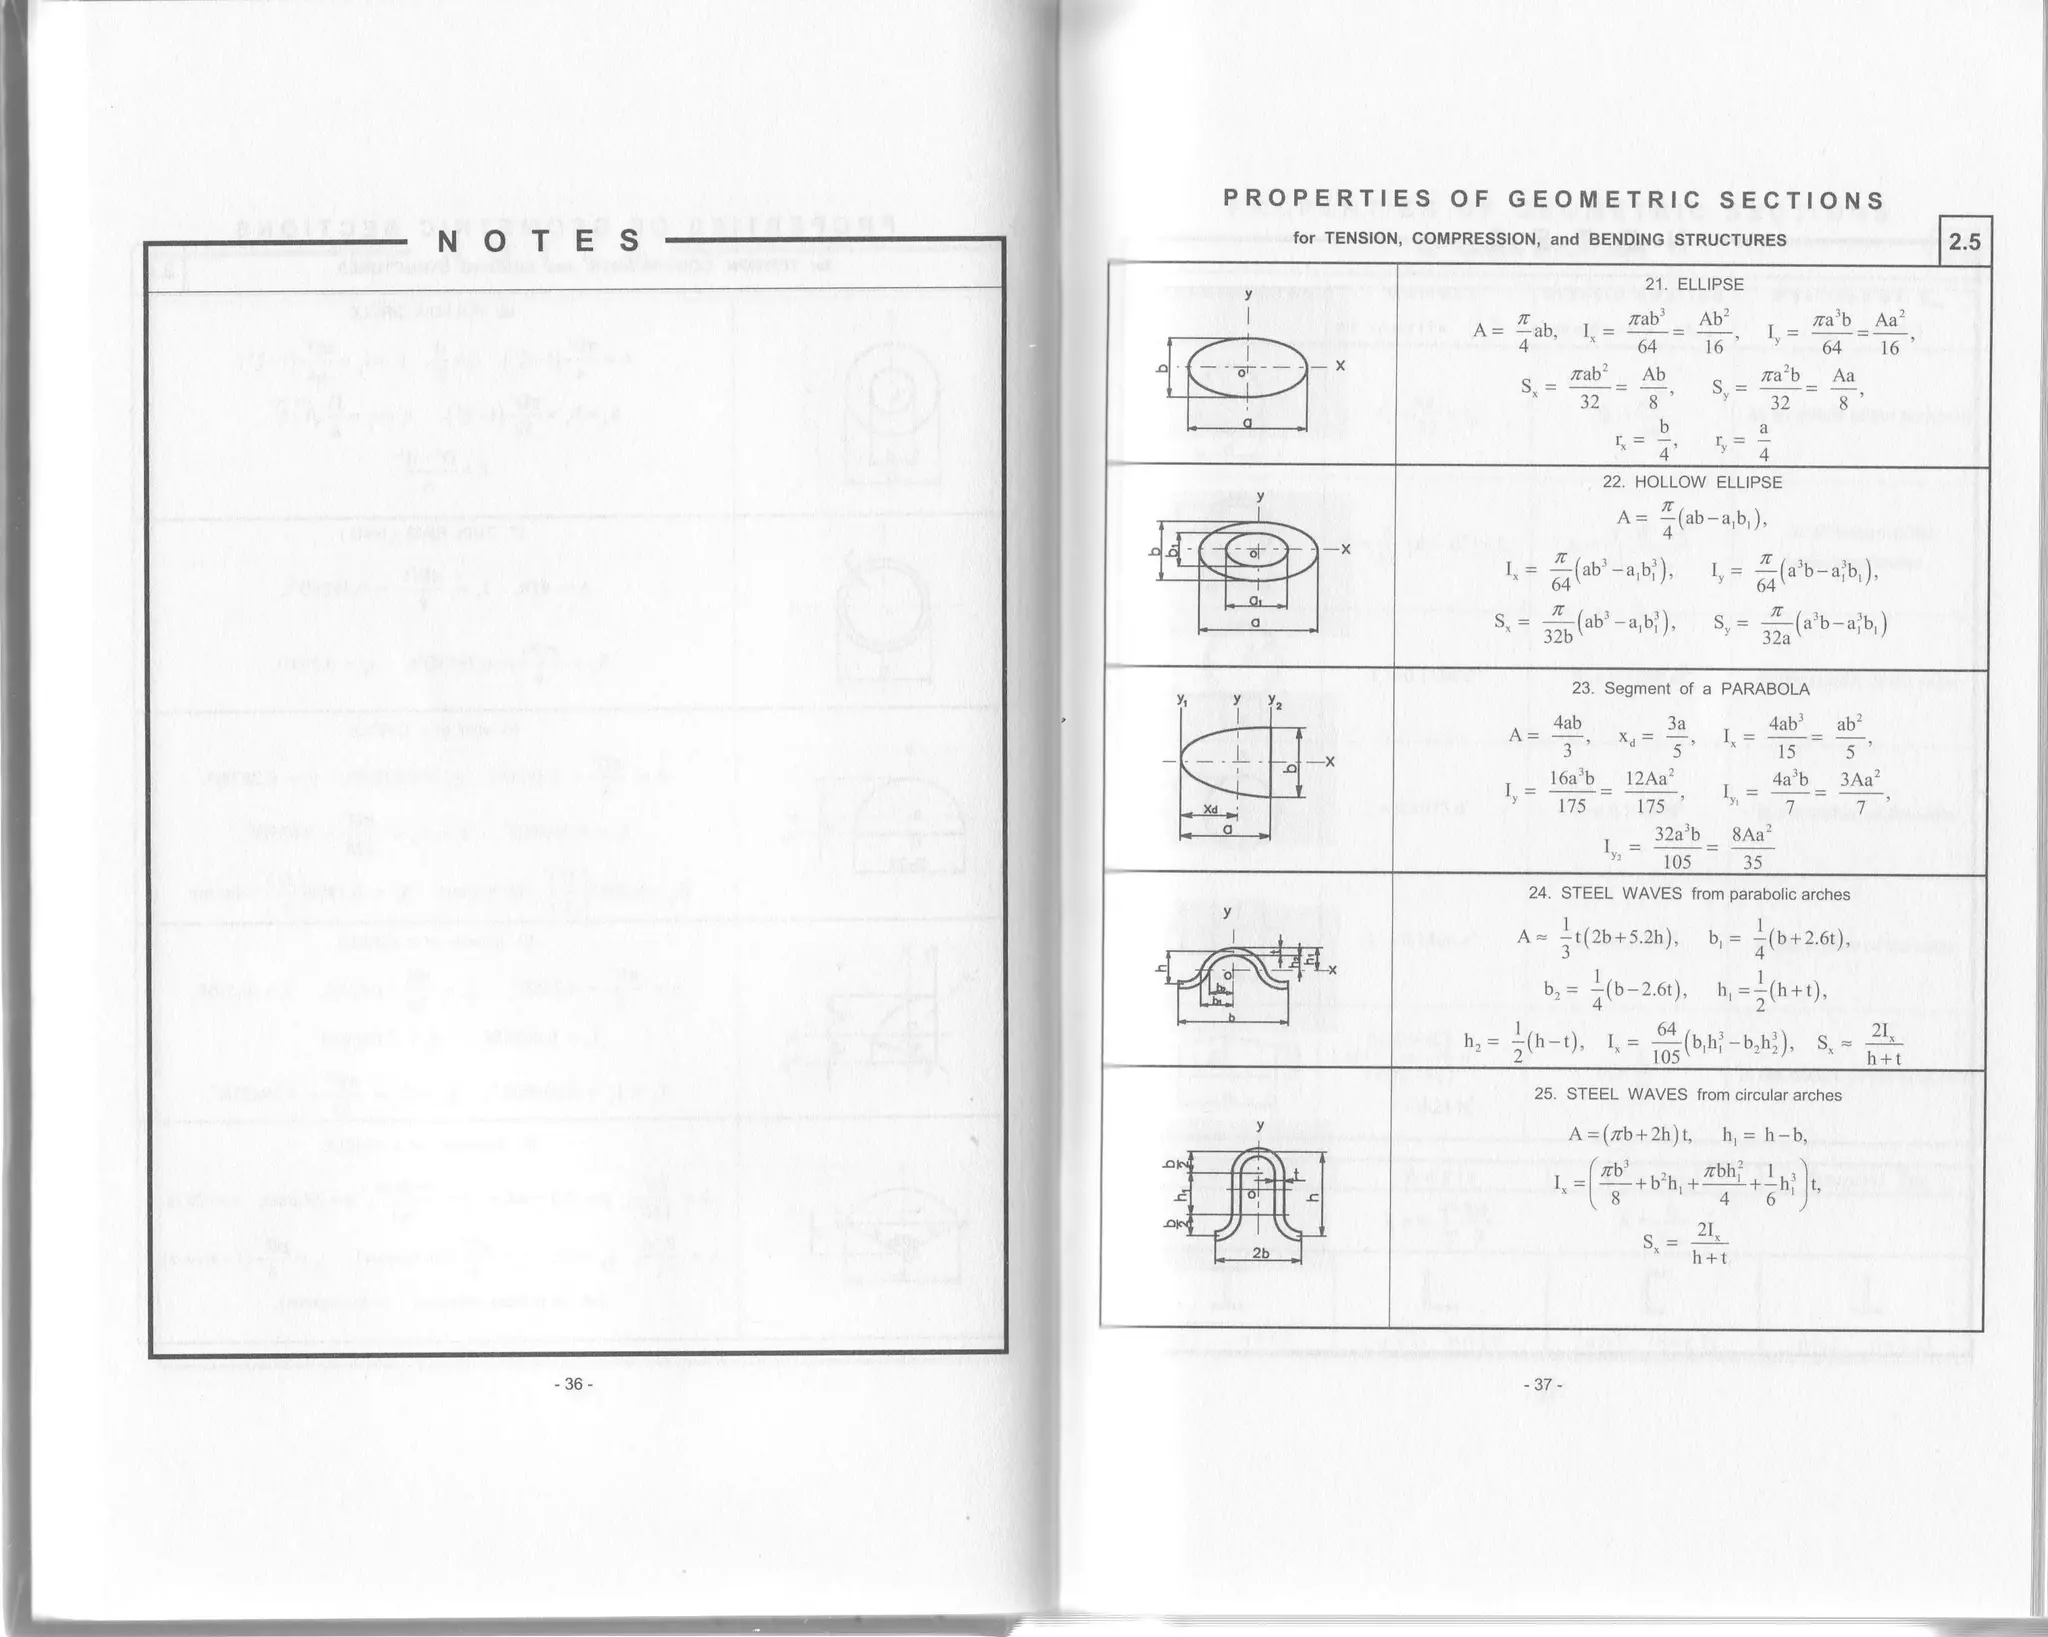 N O T E S
- 36 -
PROPERTIES OF GEOMETRIC SECTIONS
for TENSION, COMPRESSION, and BENDING STRUCTURES
2.5
21. ELLIPSE
y
x
o
b
a
A = π/4 ab, Iₓ = πab³/64 = Ab²/16, I_y = πa³b/64 = Aa²/16,
Sₓ = πab²/32 = Ab/8, S_y = πa²b/32 = Aa/8,
rₓ = b/4, r_y = a/4
22. HOLLOW ELLIPSE
y
x
o
b
b₁
a₁
a
A = π/4 (ab – a₁b₁),
Iₓ = π/64 (ab³ – a₁b₁³), I_y = π/64 (a³b – a₁³b₁),
Sₓ = π/32b (ab³ – a₁b₁³), S_y = π/32a (a³b – a₁³b₁)
23. Segment of a PARABOLA
y₁ y y₂
x
b
xd
a
A = 4ab/3, x_d = 3a/5, Iₓ = 4ab³/15 = ab²/5,
I_y = 16a³b/175 = 12Aa²/175, I_y₁ = 4a³b/7 = 3Aa²/7,
I_y₂ = 32a³b/105 = 8Aa²/35
24. STEEL WAVES from parabolic arches
y
x
o
h
t
h₂
h₁
b₂
b₁
b
A ≈ 1/3 t(2b + 5.2h), b₁ = 1/4 (b + 2.6t),
b₂ = 1/4 (b – 2.6t), h₁ = 1/2 (h + t),
h₂ = 1/2 (h – t), Iₓ = 64/105 (b₁h₁³ – b₂h₂³), Sₓ ≈ 2Iₓ/h + t
25. STEEL WAVES from circular arches
y
b/2
h₁
b/2
o
t
h
2b
A = (πb + 2h) t, h₁ = h – b,
Iₓ = (πb³/8 + b²h₁ + πbh₁²/4 + 1/6 h₁³) t,
Sₓ = 2Iₓ/h + t
- 37 -